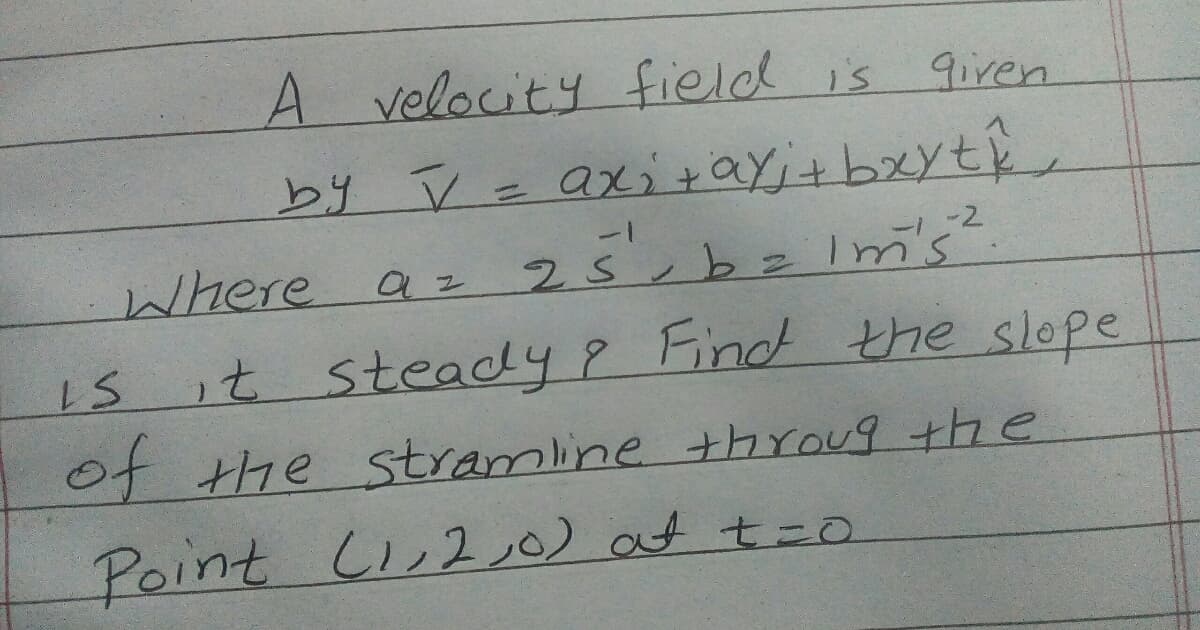 A velocity field is given
by V̄ = axi + ayj + bxyt k̂,
Where a = 2 s⁻¹, b = 1 m⁻¹s⁻².
is it steady? Find the slope
of the stramline throug the
Point (1,2,0) at t=0